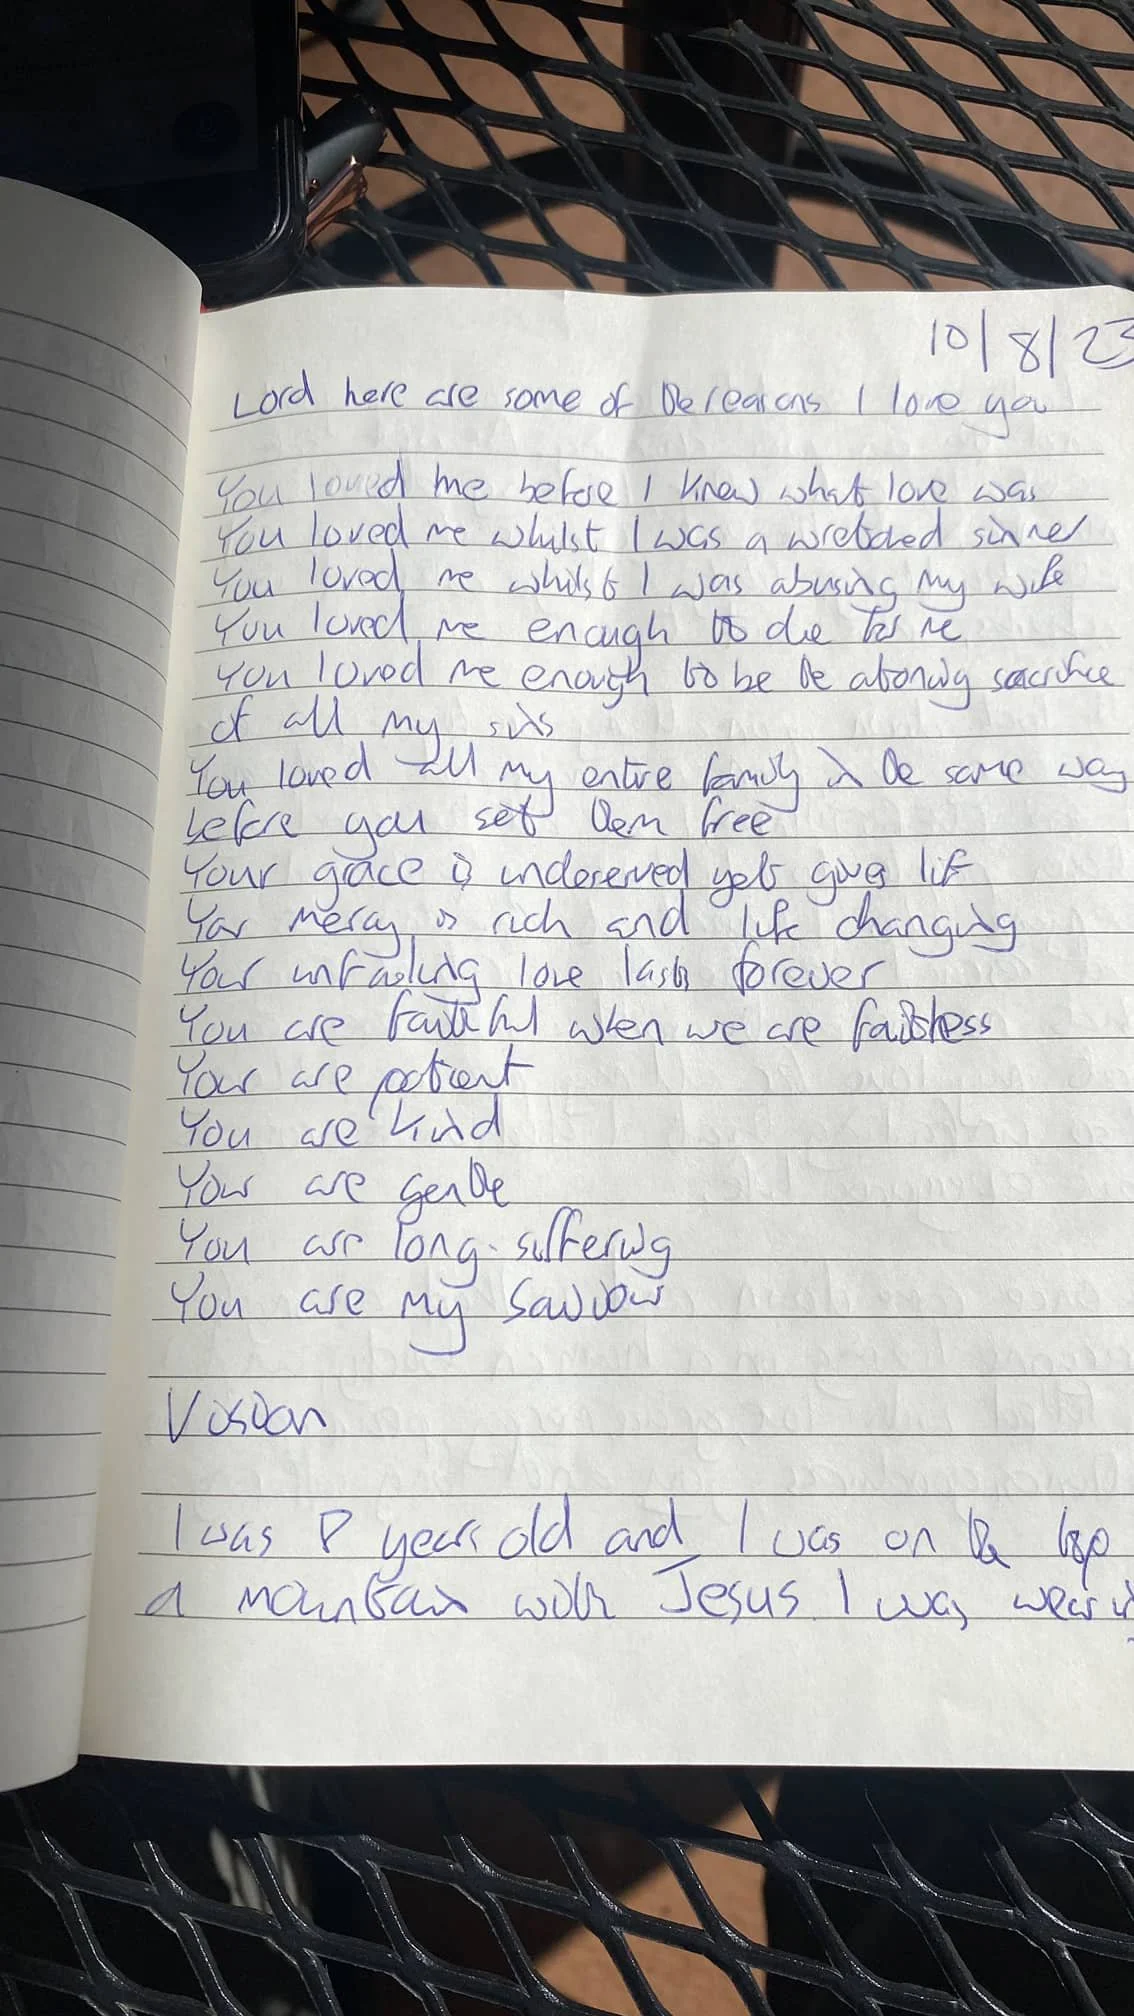 10/8/23
Lord here are some of the reasons I love you
You loved me before I knew what love was
You loved me whilst I was a wretched sinner
You loved me whilst I was abusing my wife
You loved me enough to die for me
You loved me enough to be the atoning sacrifice
of all my sins
You loved all my entire family in the same way
before you set them free
Your grace is undeserved yet gives life
Your mercy is rich and life changing
Your unfailing love lasts forever
You are faithful when we are faithless
Your are patient
You are kind
You are gentle
You are long-suffering
You are my Saviour
Vision
I was 8 years old and I was on the top
a mountain with Jesus I was wearing